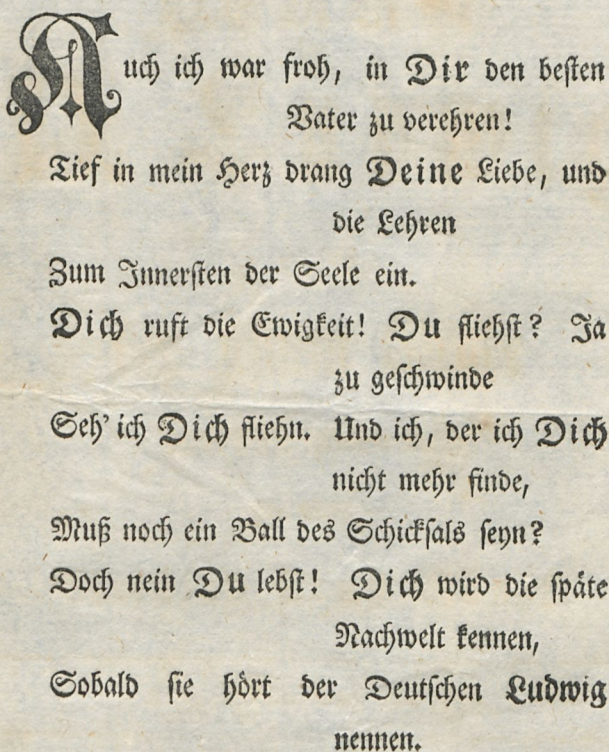 Auch ich war froh, in Dir den besten
Vater zu verehren!
Tief in mein Herz drang Deine Liebe, und
die Lehren
Zum Innersten der Seele ein.
Dich ruft die Ewigkeit! Du fliehst? Ja
zu geschwinde
Seh' ich Dich fliehn. Und ich, der ich Dich
nicht mehr finde,
Muß noch ein Ball des Schicksals seyn?
Doch nein Du lebst! Dich wird die späte
Nachwelt kennen,
Sobald sie hört der Deutschen Ludwig
nennen.